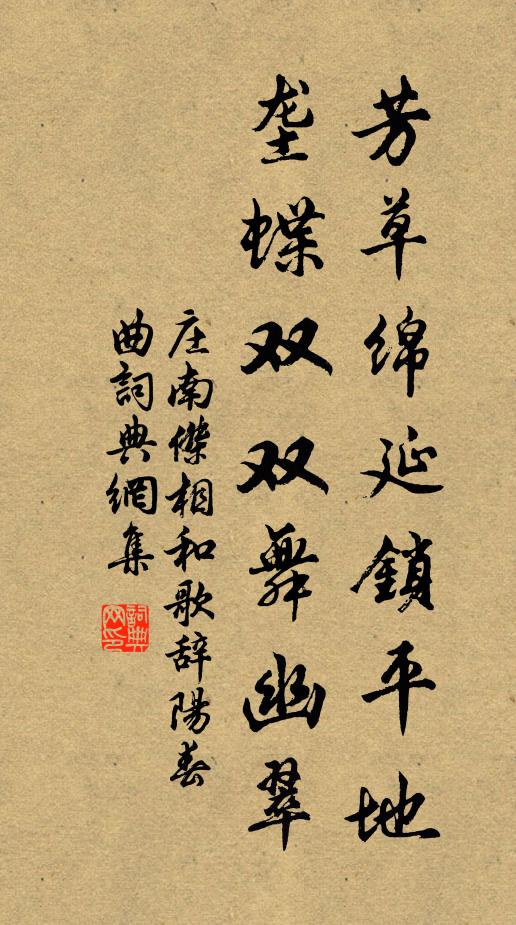 芳草绵延鎖平地
垄蝶双双舞幽翠
庄南傑相和歌辞陽春
曲詞典網集
詞典网印